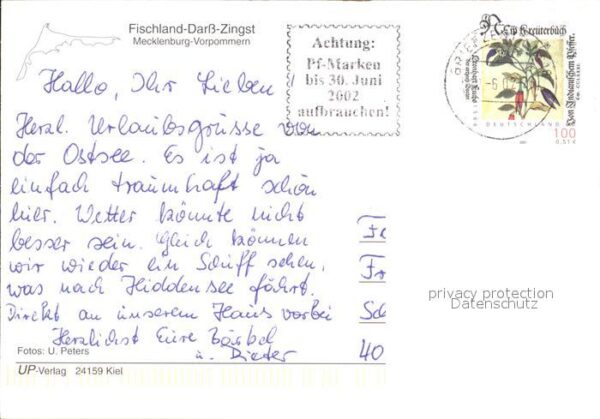 Fischland-Darß-Zingst
Mecklenburg-Vorpommern
Achtung:
Pf-Marken
bis 30. Juni
2002
aufbrauchen!
Ein Kreuterbüch
Von Indianischem Pfeffer.
DEUTSCHLAND
100
0,51 €
Hallo, Ihr Lieben
Herzl. Urlaubsgrüsse von
der Ostsee. Es ist ja
einfach traumhaft schön
hier. Wetter könnte nicht
besser sein. Gleich können
wir wieder ein Schiff sehen,
was nach Hiddensee fährt.
Direkt an unserem Haus vorbei
Herzlichst Eure Bärbel
u. Dieter
Fr
40
privacy protection
Datenschutz
Fotos: U. Peters
UP-Verlag 24159 Kiel